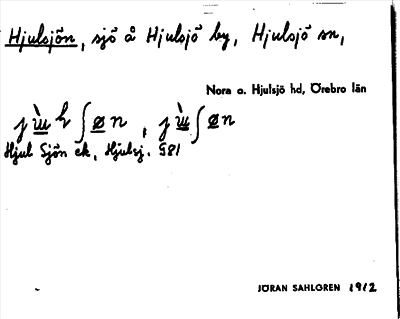 Hjulsjön, sjö å Hjulsjö by, Hjulsjö sn,
Nora o. Hjulsjö hd, Örebro län
Hjul Sjön ek, Hjulsj. 981
JÖRAN SAHLGREN 1912